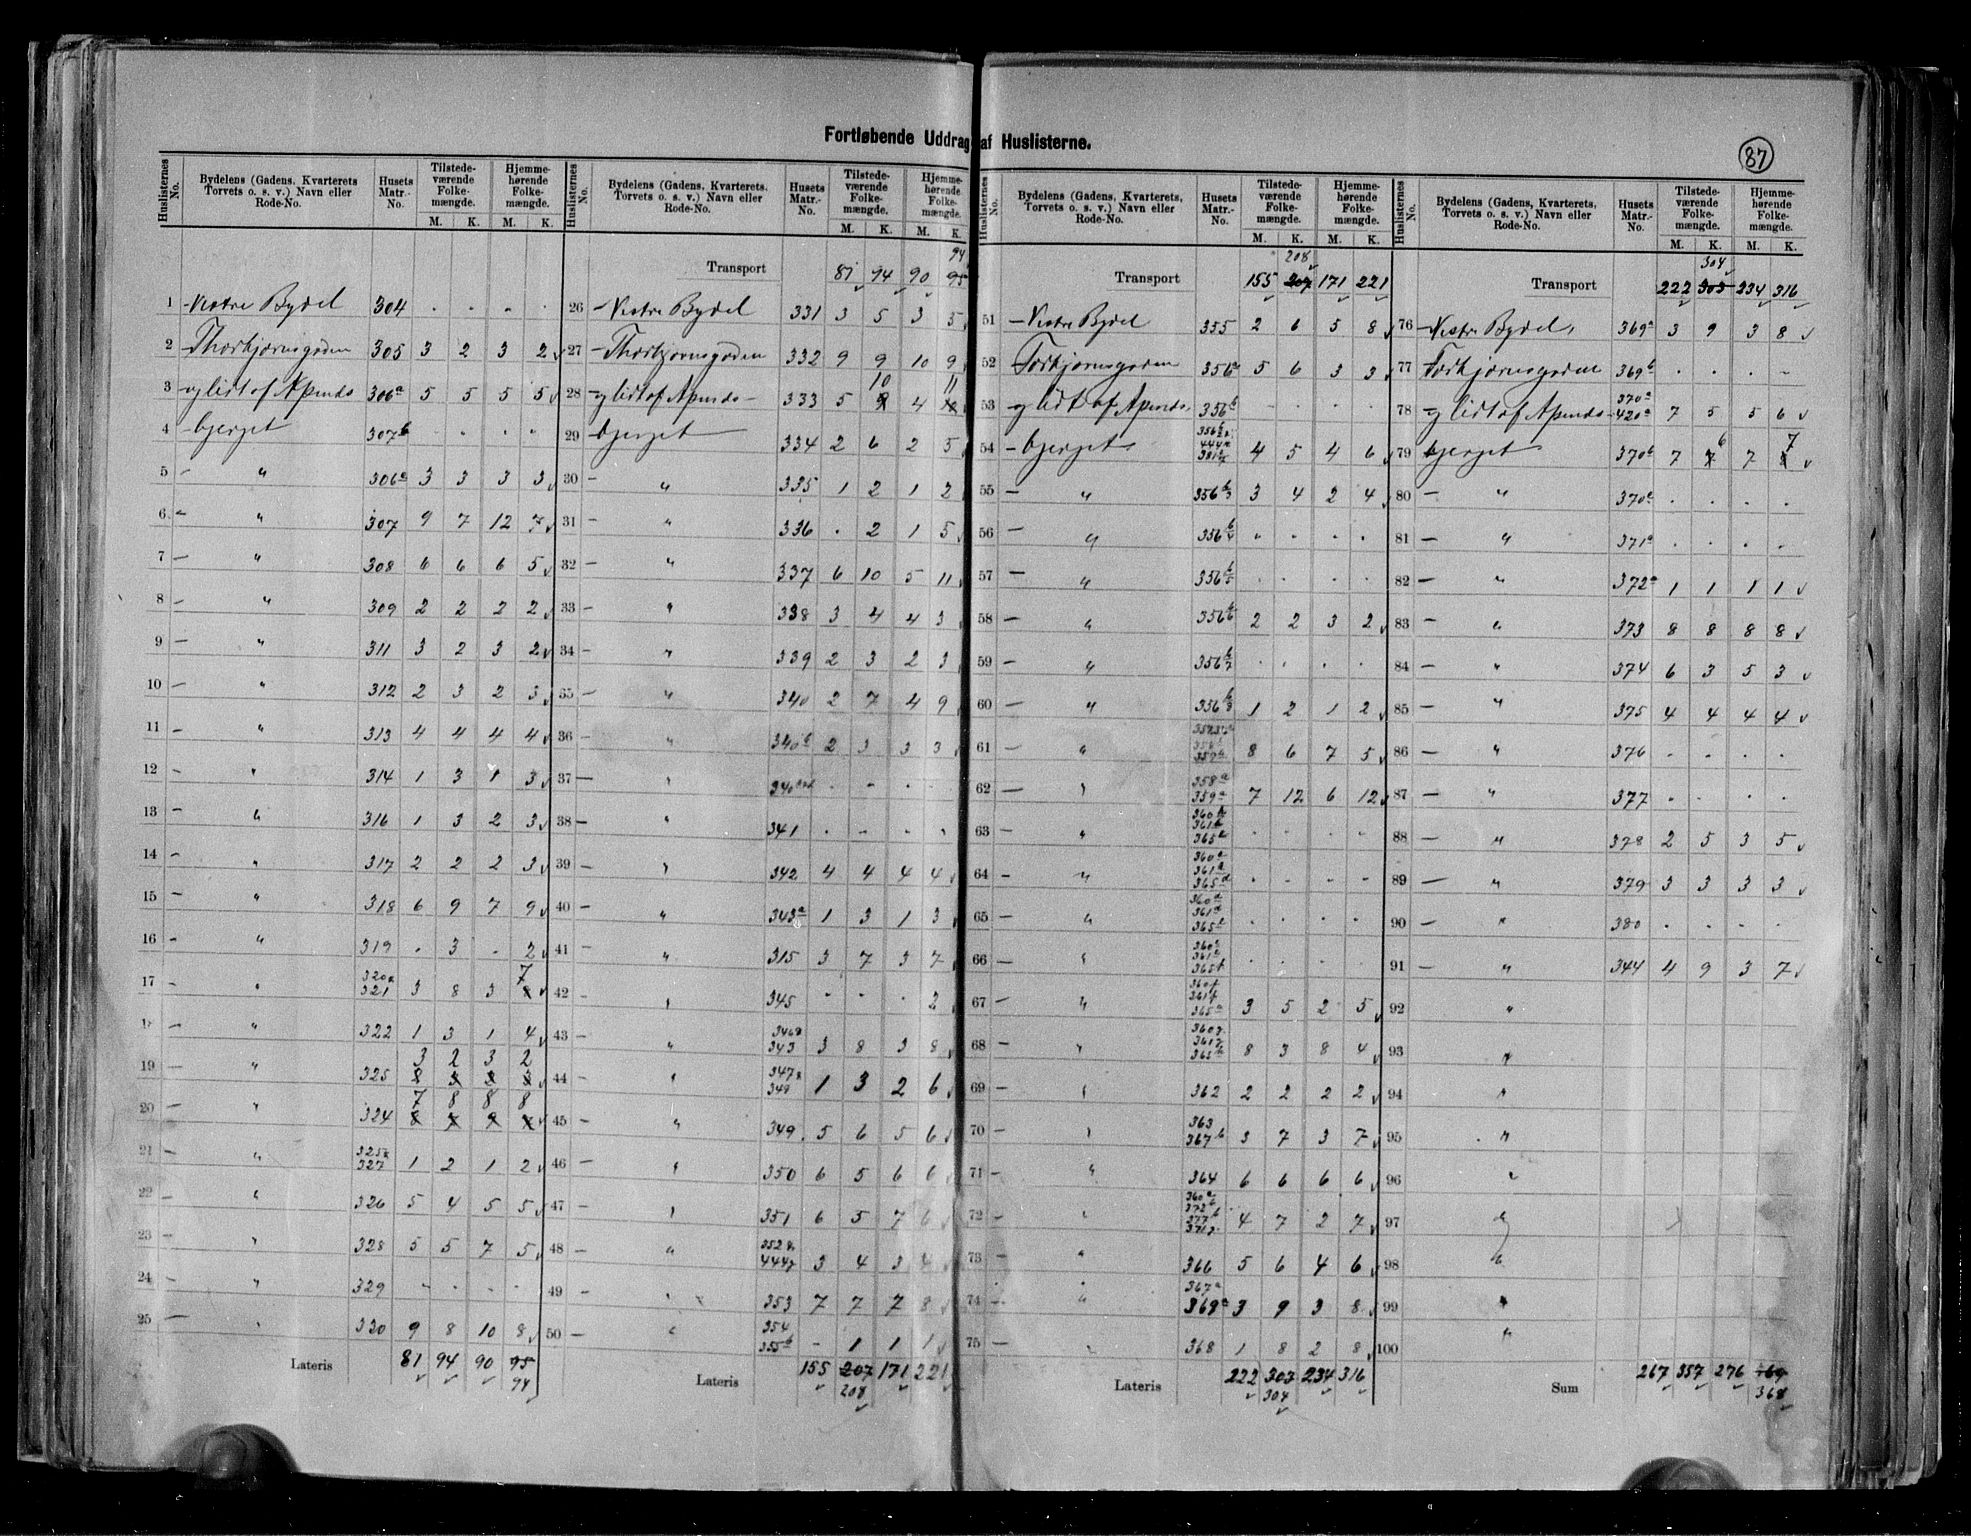 Fortløbende Uddrag af Huslisterne.
87
Huslisternes No. | Bydelens (Gadens, Kvarterets Torvets o. s. v.) Navn eller Rode-No. | Husets Matr.-No. | Tilstedeværende Folkemængde. M. K. | Hjemmehørende Folkemængde. M. K.
1 Vestre Bydel 304 . . . .
2 Thorbjørnsgaden 305 3 2 3 2
3 og lidt af Apenæs 306a 5 5 5 5
4 bjerget 307b . . . "
5 " 306c 3 3 3 3
6 " 307 9 7 12 7
7 " 308 6 6 6 5
8 " 309 2 2 2 2
9 " 311 3 2 3 2
10 " 312 2 3 2 3
11 " 313 4 4 4 4
12 " 314 1 3 1 3
13 " 316 1 3 2 3
14 " 317 2 2 2 3
15 " 318 6 9 7 9
16 " 319 . 3 . 2
17 " 320a 321 3 8 3 7
18 " 322 1 3 1 4
19 " 325 3 2 3 2
20 " 324 7 8 8 8
21 " 325a 327 1 2 1 2
22 " 326 5 4 5 5
23 " 328 5 5 7 5
24 " 329 . . . .
25 " 330 9 8 10 8
Lateris 81 94 90 95
94
Huslisternes No. | Bydelens (Gadens, Kvarterets, Torvets o. s. v.) Navn eller Rode-No. | Husets Matr.-No. | Tilstedeværende Folkemængde. M. K. | Hjemmehørende Folkemængde. M. K.
94
Transport 81 94 90 95
26 Vestre Bydel 331 3 5 3 5
27 Thorbjørnsgaden 332 9 9 10 9
28 og lidt af Apenæs- 333 5 10 4 11
29 bjerget 334 2 6 2 5
30 " 335 1 2 1 2
31 " 336 . 2 1 5
32 " 337 6 10 5 11
33 " 338 3 4 4 3
34 " 339 2 3 2 3
35 " 340 2 7 4 9
36 " 340b 2 3 3 3
37 " . . . .
38 " 341 . . . .
39 " 342 4 4 4 4
40 " 343a 1 3 1 3
41 " 315 3 7 3 7
42 " 345 . . . 2
43 " 343 3 8 3 8
44 " 1 3 2 6
45 " 349 5 6 5 6
46 " 350 6 5 6 6
47 " 351 6 5 7 6
48 " 3 4 3 4
49 " 353 7 7 7 8
50 " 354 355b - 1 1 1
Lateris 155 207 171 221
208
Huslisternes No. | Bydelens (Gadens, Kvarterets, Torvets o. s. v.) Navn eller Rode-No. | Husets Matr.-No. | Tilstedeværende Folkemængde. M. K. | Hjemmehørende Folkemængde. M. K.
208
Transport 155 207 171 221
51 Vestre Bydel 355 2 6 5 8
52 Torbjørnsgaden 356a 5 6 3 3
53 og lidt af Apenæs 356b . . . .
54 bjerget 4 5 4 6
55 " 3 4 2 4
56 " . . . .
57 " . . . .
58 " 2 2 3 2
59 " . . . .
60 " 1 2 1 2
61 " 8 6 7 5
62 " 358a 359a 7 12 6 12
63 " . . . .
64 " . . . .
65 " . . . .
66 " . . . .
67 " 3 5 2 5
68 " 8 3 8 4
69 " 362 2 2 2 2
70 " 363 367b 3 7 3 7
71 " 364 6 6 6 6
72 " 4 7 2 7
73 " 366 5 6 4 6
74 " 367a 369a 3 9 3 8
75 " 368 1 8 2 8
Lateris 222 303 234 316
304
Huslisternes No. | Bydelens (Gadens, Kvarterets, Torvets o. s. v.) Navn eller Rode-No. | Husets Matr.-No. | Tilstedeværende Folkemængde. M. K. | Hjemmehørende Folkemængde. M. K.
304
Transport 222 303 234 316
76 Vestre Bydel, 369a 3 9 3 8
77 Torbjørnsgaden 369b . . . -
78 og lidt af Apenæs 370a 420a 7 5 5 6
79 bjerget 370b 7 6 7 7
80 " 370c . . . .
81 " 371a . . . .
82 " 372a 1 1 1 1
83 " 373 8 8 8 8
84 " 374 6 3 5 3
85 " 375 4 4 4 4
86 " 376 . . . .
87 " 377 . . . .
88 " 378 2 5 3 5
89 " 379 3 3 3 3
90 " 380 . . . .
91 " 344 4 9 3 7
92 "
93 "
94 "
95 "
96 "
97 "
98 "
99 "
100 "
Sum 267 357 276
368